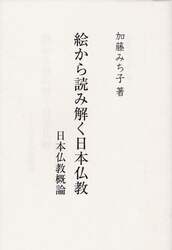 加藤みち子 著
絵から読み解く日本仏教
日本仏教概論